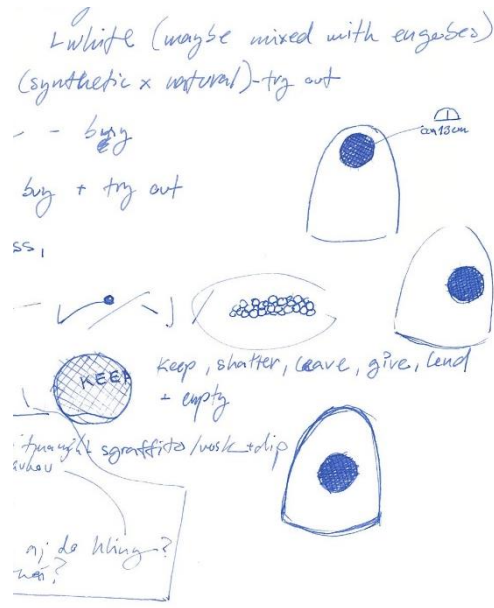 white (maybe mixed with engobes)
(synthetic x natural) - try out
- - buy
buy + try out
ss,
cn 13cm
KEEP
keep, shatter, leave, give, lend
+ empty
sgraffito / vosk + dip
aj do hliny?